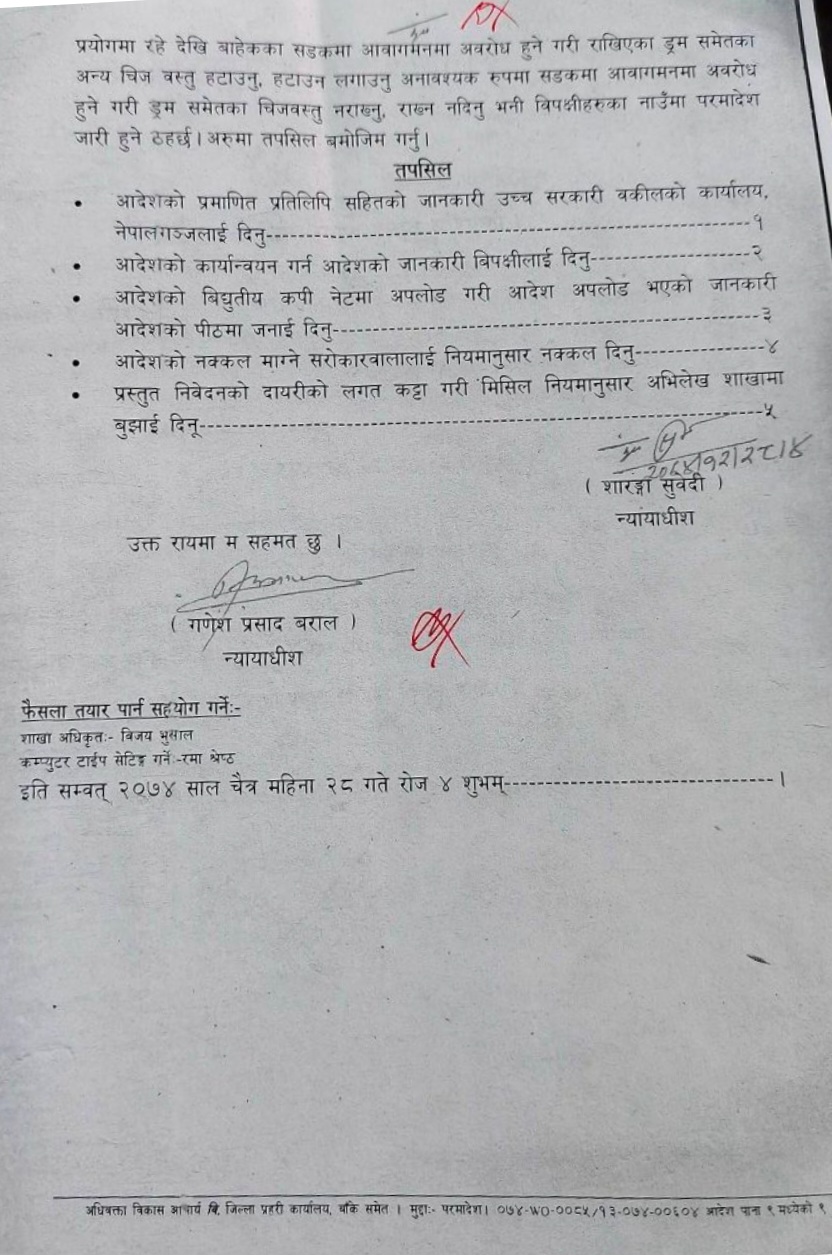 प्रयोगमा रहे देखि बाहेकका सडकमा आवागमनमा अवरोध हुने गरी राखिएका ड्रम समेतका
अन्य चिज वस्तु हटाउनु, हटाउन लगाउनु अनावश्यक रुपमा सडकमा आवागमनमा अवरोध
हुने गरी ड्रम समेतका चिजवस्तु नराख्नु, राख्न नदिनु भनी विपक्षीहरुका नाउँमा परमादेश
जारी हुने ठहर्छ। अरुमा तपसिल बमोजिम गर्नु।
तपसिल
• आदेशको प्रमाणित प्रतिलिपि सहितको जानकारी उच्च सरकारी वकीलको कार्यालय,
नेपालगञ्जलाई दिनु------------------------------------------------------१
• आदेशको कार्यान्वयन गर्न आदेशको जानकारी विपक्षीलाई दिनु----------------२
• आदेशको बिद्युतीय कपी नेटमा अपलोड गरी आदेश अपलोड भएको जानकारी
आदेशको पीठमा जनाई दिनु-----------------------------------------------३
• आदेशको नक्कल माग्ने सरोकारवालालाई नियमानुसार नक्कल दिनु---------------४
• प्रस्तुत निवेदनको दायरीको लगत कट्टा गरी मिसिल नियमानुसार अभिलेख शाखामा
बुझाई दिनू---------------------------------------------------------------५
२०७४।१२।२८।४
( शारङ्गा सुवेदी )
न्यायाधीश
उक्त रायमा म सहमत छु ।
( गणेश प्रसाद बराल )
न्यायाधीश
फैसला तयार पार्न सहयोग गर्नेः-
शाखा अधिकृतः- विजय भुसाल
कम्प्युटर टाईप सेटिङ्ग गर्नेः-रमा श्रेष्ठ
इति सम्वत् २०७४ साल चैत्र महिना २८ गते रोज ४ शुभम्------------------------------।
अधिवक्ता विकास आचार्य बि. जिल्ला प्रहरी कार्यालय, बाँके समेत । मुद्दाः- परमादेश। ०७४-WO-००८५/१३-०७४-००६०४ आदेश पाना ९ मध्येको ९